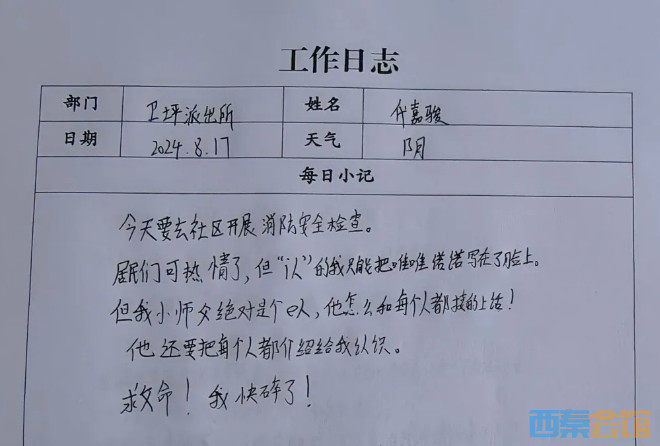 工作日志
部门 卫坪派出所 姓名 代嘉骏
日期 2024.8.17 天气 阴
每日小记
今天要去社区开展消防安全检查。
居民们可热情了,但“i人”的我只能把唯唯诺诺写在了脸上。
但我小师父绝对是个e人,他怎么和每个人都接的上话!
他还要把每个人都介绍给我认识。
救命!我快碎了!
西秦会馆